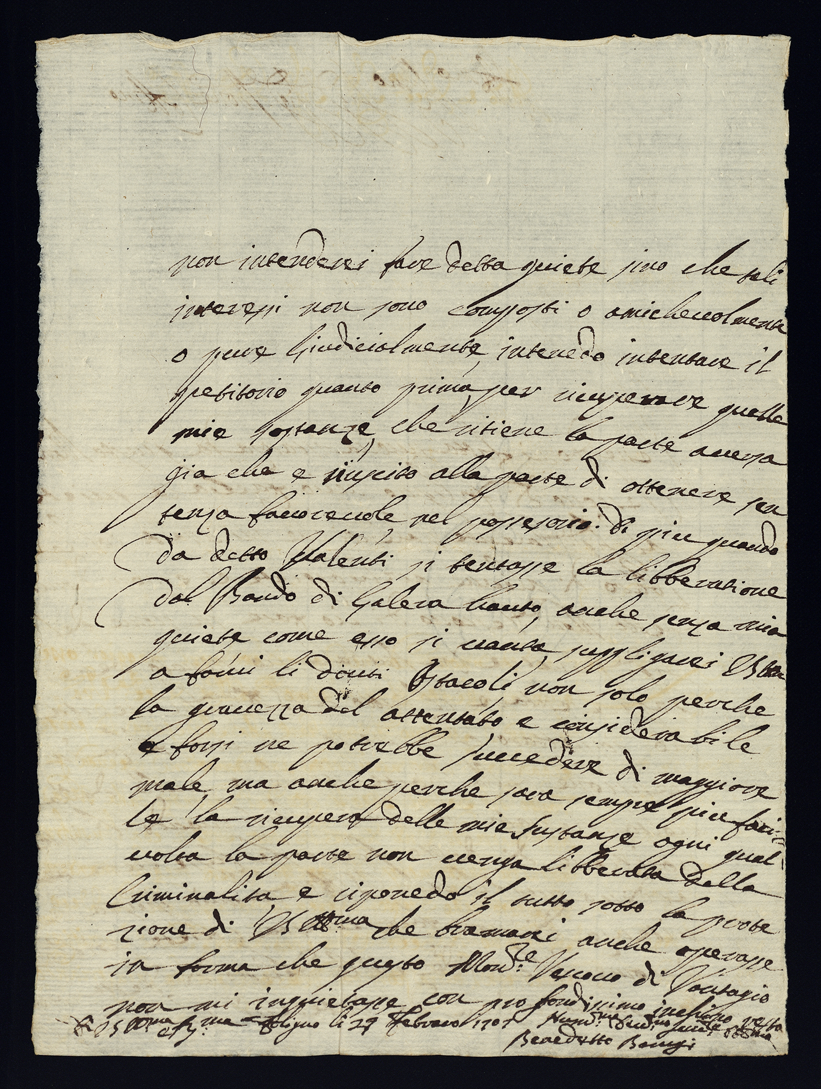 non intenderei fare detta quiete sino che tali
interessi non sono composti o amichevolmente
o pure Giudicialmente, intendo intentare il
petitorio quanto prima, per recuperare quelle
mie sostanze, che ritiene la parte aversa
gia che e riuscito alla parte di ottenere sen
tenza favorevole nel possessorio. di piu quando
da detto Valenti si tentasse la libberatione
dal Bando di Galera havuto, anche senza mia
quiete come esso si vanta, suppligarei
a farni li dovuti Ostacoli non solo perche
la gravezza del attentato e considerabile
e forsi ne potrebbe succedere di maggiore
male, ma anche perche sara sempre piu faci-
le la recupera delle mie Sustanze ogni qual
volta la parte non venga libberata dalla
Criminalita e riponedo il tutto sotto la prote
zione di che bramarei anche operasse
in forma che questo Vescovo di
non mi inquietasse con profondissimo inchino resto
Foligno li 27 Febraro 1701
Benedetto